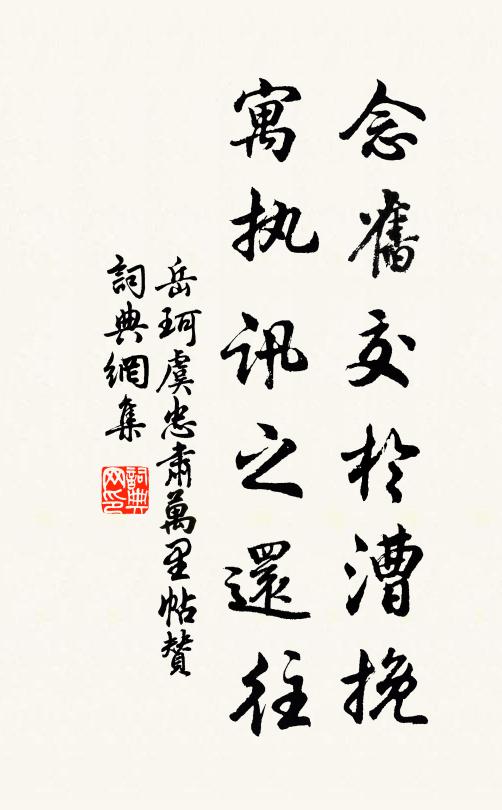 念舊交於漕挽
寓执讯之還往
岳珂虞忠肅萬里帖贊
詞典網集
詞典网印